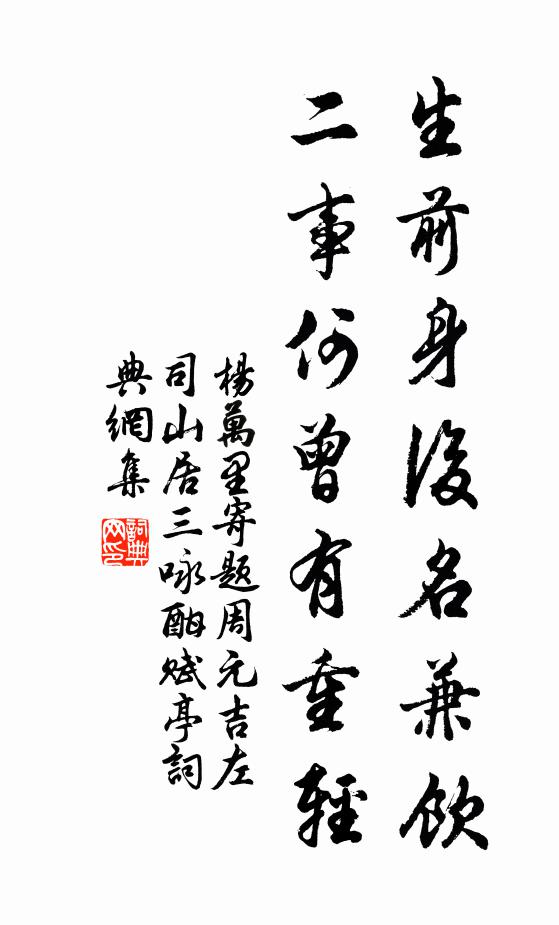 生前身後名兼飲
二事何曾有重輕
楊萬里寄題周元吉左
司山居三咏酣赋亭詞
典網集
詞典
网印